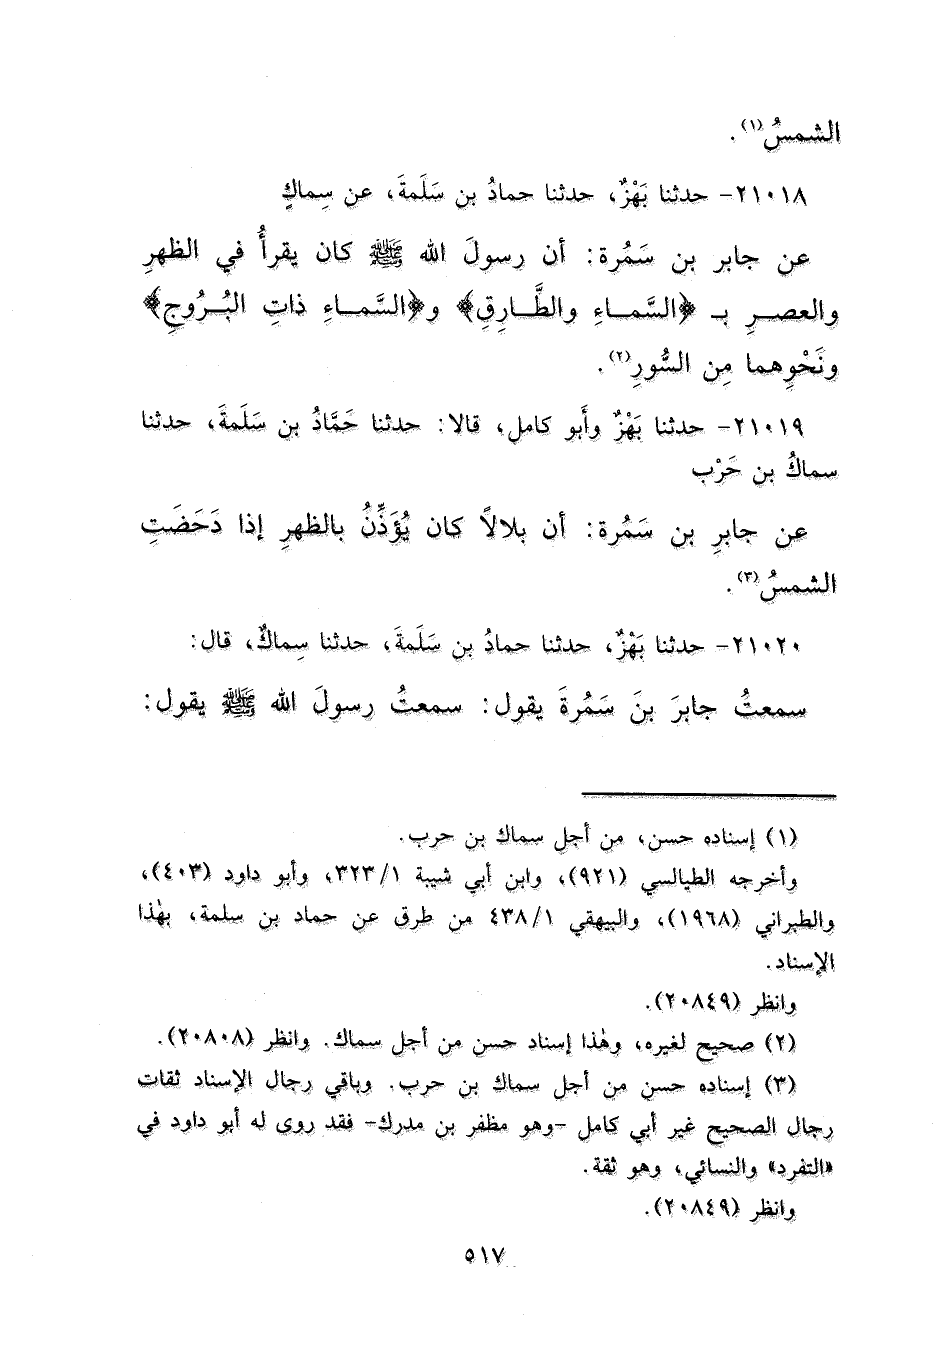 الشمسُ(١).
٢١٠١٨- حدثنا بَهْزٌ، حدثنا حمادُ بن سَلَمةَ، عن سِماكٍ
عن جابر بن سَمُرة: أن رسولَ الله ﷺ كان يقرأُ في الظهرِ
والعصـــرِ بـ ﴿السَّمـــاءِ والطَّـــارِقِ﴾ و﴿السَّمـــاءِ ذاتِ البُـــرُوجِ﴾
ونَحْوِهما مِن السُّورِ(٢).
٢١٠١٩- حدثنا بَهْزٌ وأَبو كامل، قالا: حدثنا حَمَّادُ بن سَلَمةَ، حدثنا
سماكُ بن حَرْب
عن جابرِ بن سَمُرة: أن بلالاً كان يُؤَذِّنُ بالظهرِ إذا دَحَضَتِ
الشمسُ(٣).
٢١٠٢٠- حدثنا بَهْزٌ، حدثنا حمادُ بن سَلَمةَ، حدثنا سِماكٌ، قال:
سمعتُ جابرَ بنَ سَمُرةَ يقول: سمعتُ رسولَ الله ﷺ يقول:
(١) إسناده حسن، من أجلِ سماك بن حرب.
وأخرجه الطيالسي (٩٢١)، وابن أبي شيبة ٣٢٣/١، وأبو داود (٤٠٣)،
والطبراني (١٩٦٨)، والبيهقي ٤٣٨/١ من طرق عن حماد بن سلمة، بهٰذا
الإسناد.
وانظر (٢٠٨٤٩).
(٢) صحيح لغيره، وهٰذا إسناد حسن من أجل سماك. وانظر (٢٠٨٠٨).
(٣) إسناده حسن من أجل سماك بن حرب. وباقي رجال الإسناد ثقات
رجال الصحيح غير أبي كامل -وهو مظفر بن مدرك- فقد روى له أبو داود في
«التفرد» والنسائي، وهو ثقة.
وانظر (٢٠٨٤٩).
٥١٧